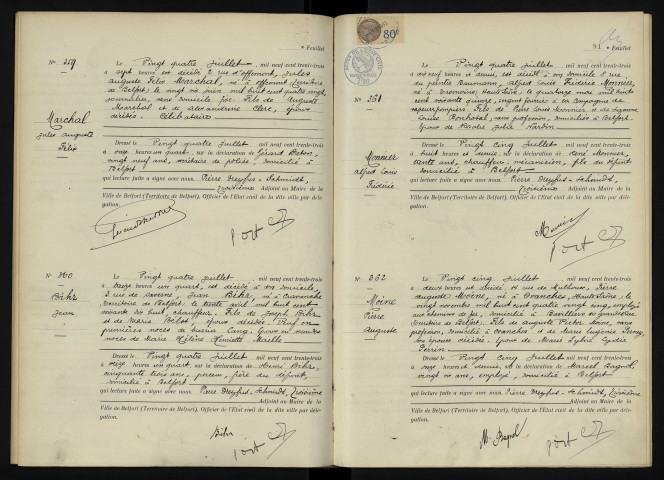 N° 359
Marchal
Jules Auguste
Félix
Le Vingt quatre Juillet, mil neuf cent trente-trois
à sept heures est décédé, 2 rue d'Offemont, Jules
Auguste Félix Marchal, né à Offemont (Territoire
de Belfort) le vingt six juin mil huit cent quatre vingt,
journalier, sans domicile fixe. Fils de Auguste
Marchal et de Clerc, époux
décédés. Célibataire
Dressé le Vingt quatre Juillet, mil neuf cent trente-trois
à onze heures un quart, sur la déclaration de Gérard
vingt neuf ans, secrétaire de police, domicilié à
Belfort
qui lecture faite a signé avec nous, Pierre Dreyfus-Schmidt,
troisième Adjoint au Maire de la
Ville de Belfort (Territoire de Belfort), Officier de l'Etat civil de la dite ville par délé-
gation.
N° 360
Bihr
Jean
Le Vingt quatre Juillet, mil neuf cent trente-trois
à heures un quart, est décédé à son domicile,
3 rue de Saverne, Jean Bihr, né à
Territoire de Belfort, le trente avril mil huit cent
soixante dix huit, chauffeur. Fils de Joseph Bihr
et de Marie Belot, époux décédés. Veuf en
premières noces de Maria Cang. Epoux en secondes
noces de Marie Hélène Henriette
Dressé le Vingt quatre Juillet, mil neuf cent trente-trois
à heures un quart, sur la déclaration de Bihr,
cinquante trois ans, père du défunt,
domicilié à Belfort
qui lecture faite a signé avec nous, Pierre Dreyfus-Schmidt, troisième
Adjoint au Maire de la
Ville de Belfort (Territoire de Belfort), Officier de l'Etat civil de la dite ville par délé-
gation.
Bihr
91e Feuillet
N° 361
Monnier
Alfred Louis
Frédéric
Le Vingt quatre Juillet, mil neuf cent trente-trois
à dix neuf heures et demie, est décédé en son domicile 2 rue
du peintre Baumann, Alfred Louis Frédéric Monnier,
né à (Haute Saône), le quatorze mai mil huit
cent soixante quinze, sergent fourrier à la compagnie de
sapeurs pompiers. Fils de Pierre Louis Monnier et de Suzanne
Louise Bonhotal, sans profession, domiciliée à Belfort.
Epoux de Nardin
Dressé le Vingt cinq Juillet, mil neuf cent trente-trois
à huit heures et demie, sur la déclaration de René Monnier,
trente ans, chauffeur, fils du défunt
domicilié à Belfort
qui lecture faite a signé avec nous, Pierre Dreyfus-Schmidt,
troisième Adjoint au Maire de la
Ville de Belfort (Territoire de Belfort), Officier de l'Etat civil de la dite ville par délé-
gation.
N° 362
Moine
Pierre
Auguste
Le Vingt cinq Juillet, mil neuf cent trente-trois
à deux heures est décédé, 21 rue de Mulhouse, Pierre
Auguste Moine, né à Coranches, Haute Saône, le
vingt novembre mil huit cent quatre vingt cinq, employé
aux chemins de fer, domicilié à
Territoire de Belfort. Fils de Auguste Victor Moine, sans
profession, domicilié à et de Marie Eugénie
son épouse décédée. Epoux de Marie Lydie
Perrin
Dressé le Vingt cinq Juillet, mil neuf cent trente-trois
à onze heures et demie, sur la déclaration de Marcel
vingt six ans, employé, domicilié à Belfort
qui lecture faite a signé avec nous, Pierre Dreyfus-Schmidt, troisième
Adjoint au Maire de la
Ville de Belfort (Territoire de Belfort), Officier de l'Etat civil de la dite ville par délé-
gation.